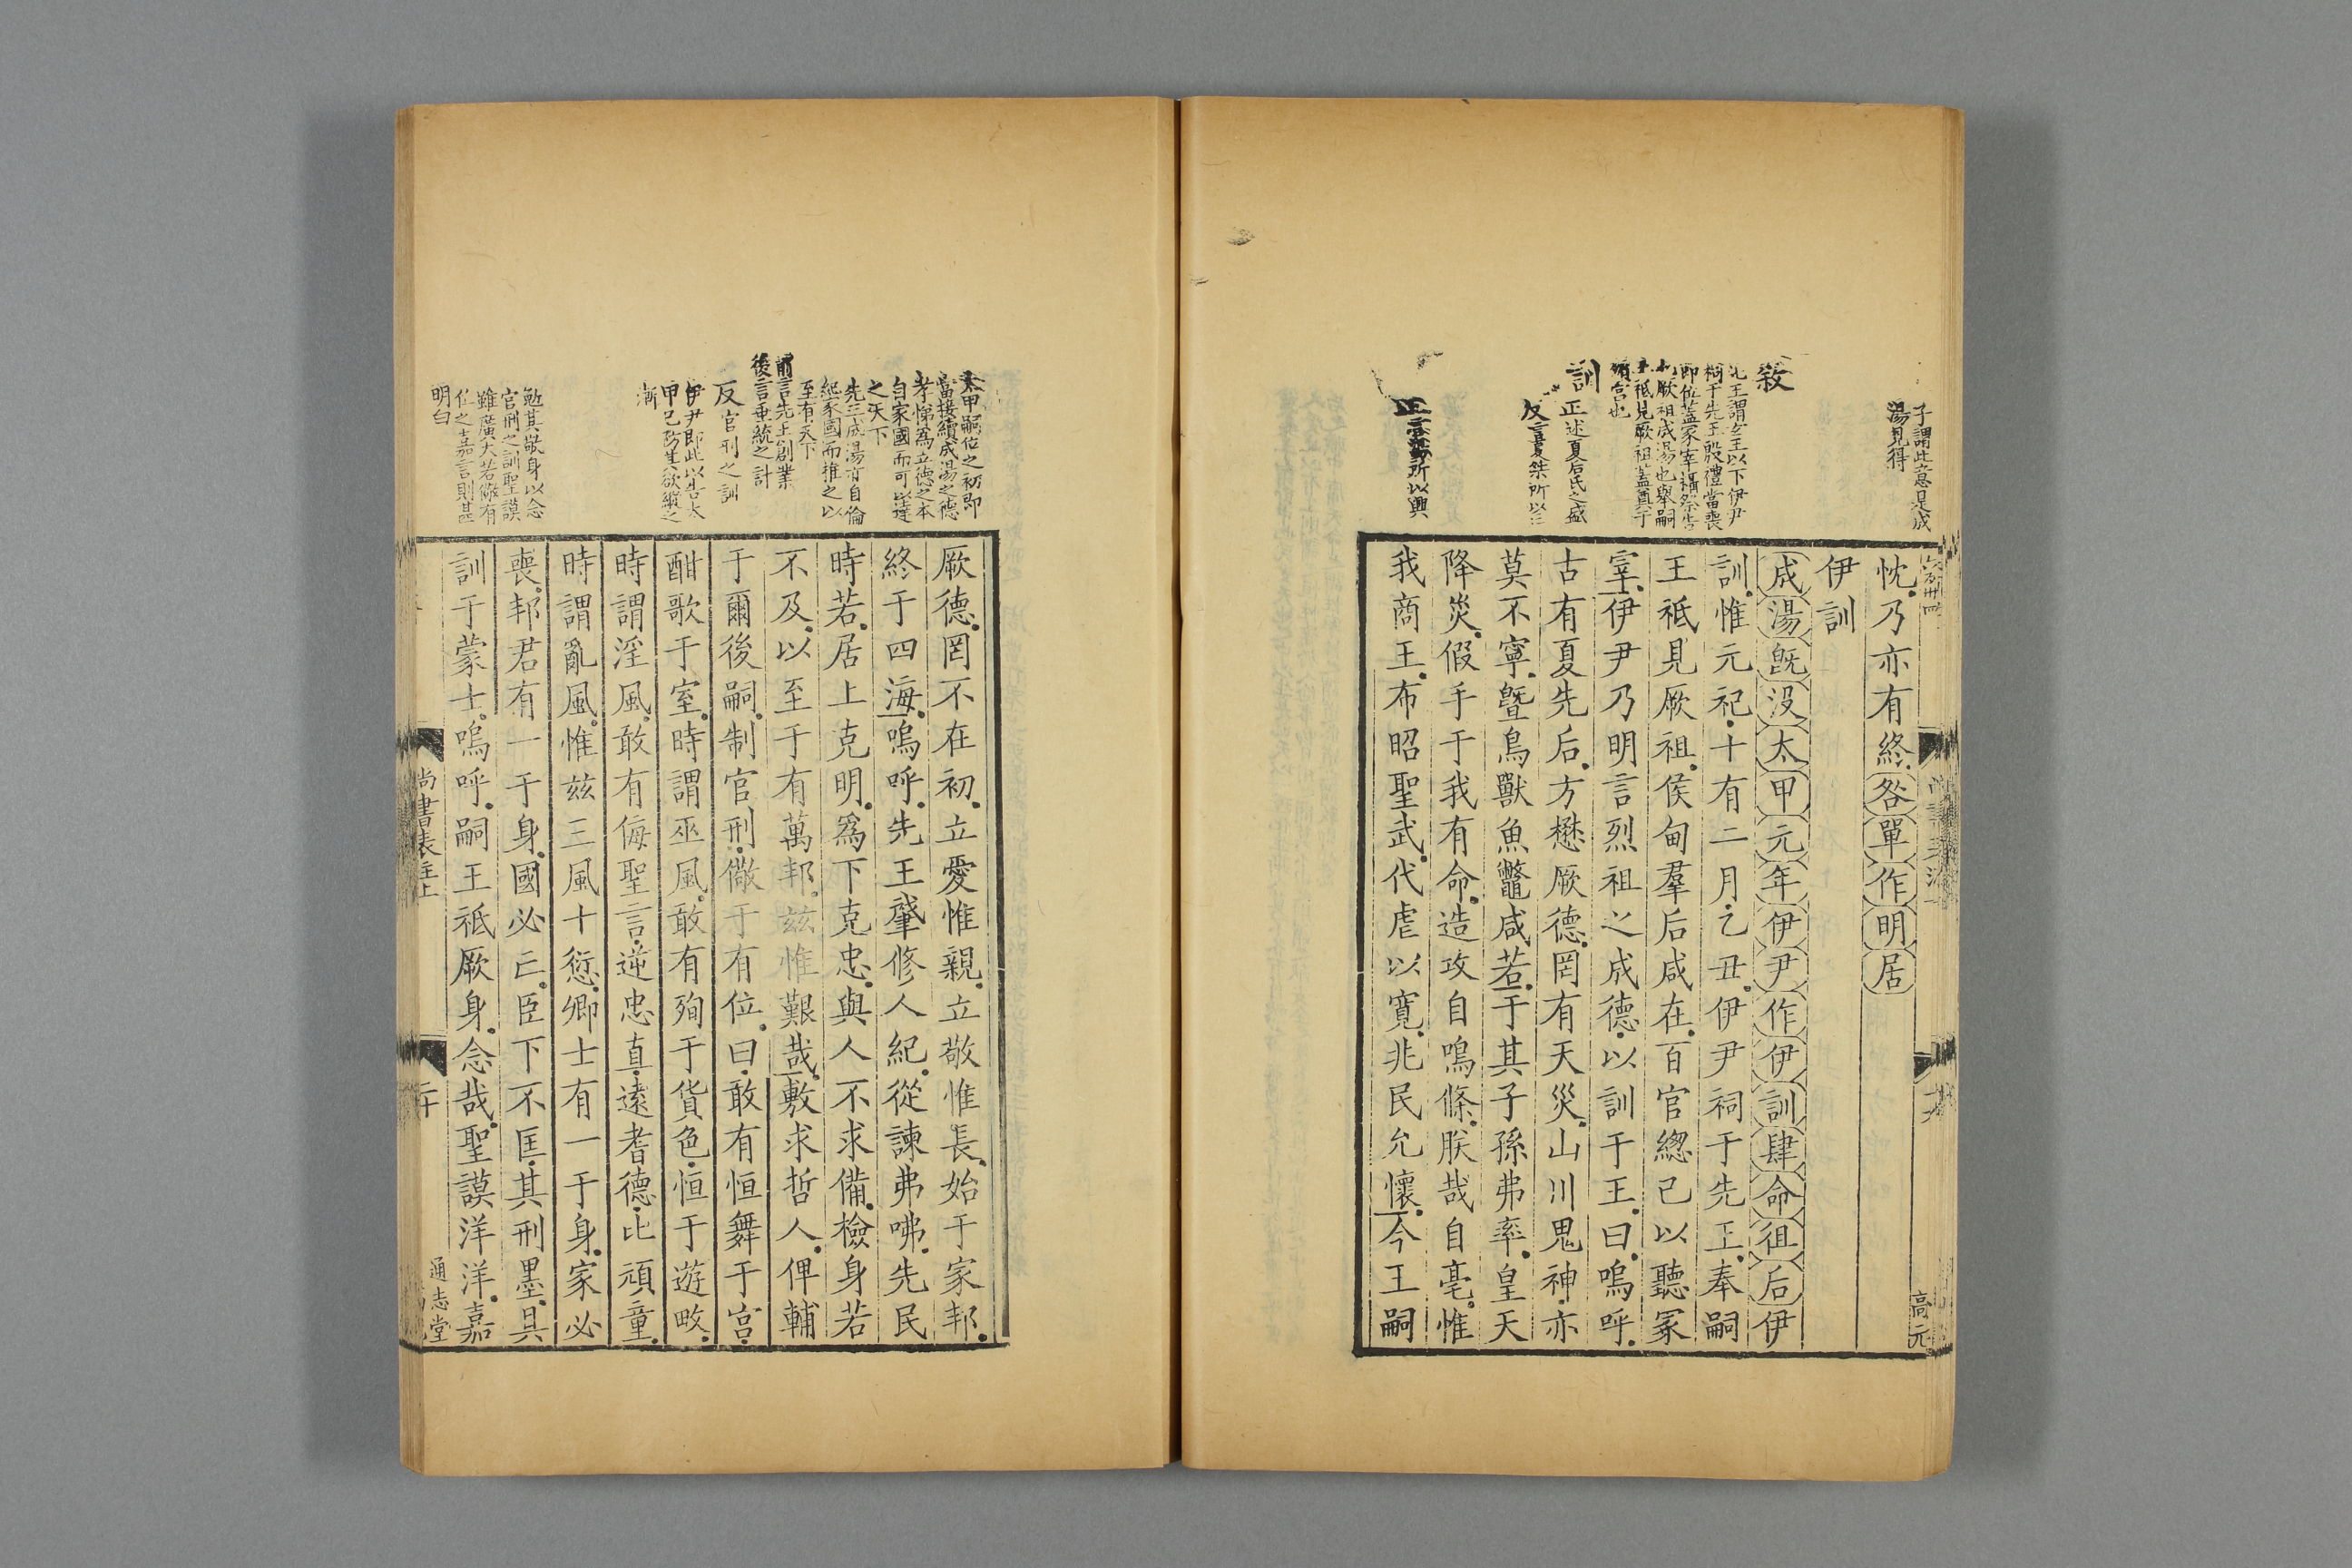 子謂此意是成
湯見得
殺
先王謂玄王以下伊尹
祠于先王殷禮當喪
即位蓋冢宰攝祭告
厥祖成湯也舉嗣
王祗見厥祖蓋奠于
殯宮也
訓
正述夏后氏之盛
反言夏桀所以亡
所以興
忱乃亦有終咎單作明居
伊訓
成湯旣没太甲元年伊尹作伊訓肆命徂后伊
訓惟元祀十有二月乙丑伊尹祠于先王奉嗣
王祗見厥祖侯甸羣后咸在百官緫己以聽冢
宰伊尹乃明言烈祖之成德以訓于王曰嗚呼
古有夏先后方懋厥德罔有天災山川鬼神亦
莫不寧曁鳥獸魚鼈咸若于其子孫弗率皇天
降災假手于我有命造攻自鳴條朕哉自亳惟
我商王布昭聖武代虐以寬兆民允懷今王嗣
高元
太甲嗣位之初即
當接續成湯之德
孝悌爲立德之本
自家國而可以達
之天下
先三成湯有自倫
紀家國而推之以
至有天下
前言先王創業
後言垂統之計
反官刑之訓
伊尹即此以告太
甲已防其欲縱之
漸
勉其敬身以念
官刑之訓聖謨
雖廣大若儆有
位之嘉言則甚
明白
厥德罔不在初立愛惟親立敬惟長始于家邦
終于四海嗚呼先王肇修人紀從諫弗咈先民
時若居上克明爲下克忠與人不求備檢身若
不及以至于有萬邦茲惟艱哉敷求哲人俾輔
于爾後嗣制官刑儆于有位曰敢有恒舞于宮
酣歌于室時謂巫風敢有殉于貨色恒于遊畋
時謂淫風敢有侮聖言逆忠直遠耆德比頑童
時謂亂風惟茲三風十愆卿士有一于身家必
喪邦君有一于身國必亡臣下不匡其刑墨具
訓于蒙士嗚呼嗣王祗厥身念哉聖謨洋洋嘉
尚書表注上
二十
通志堂